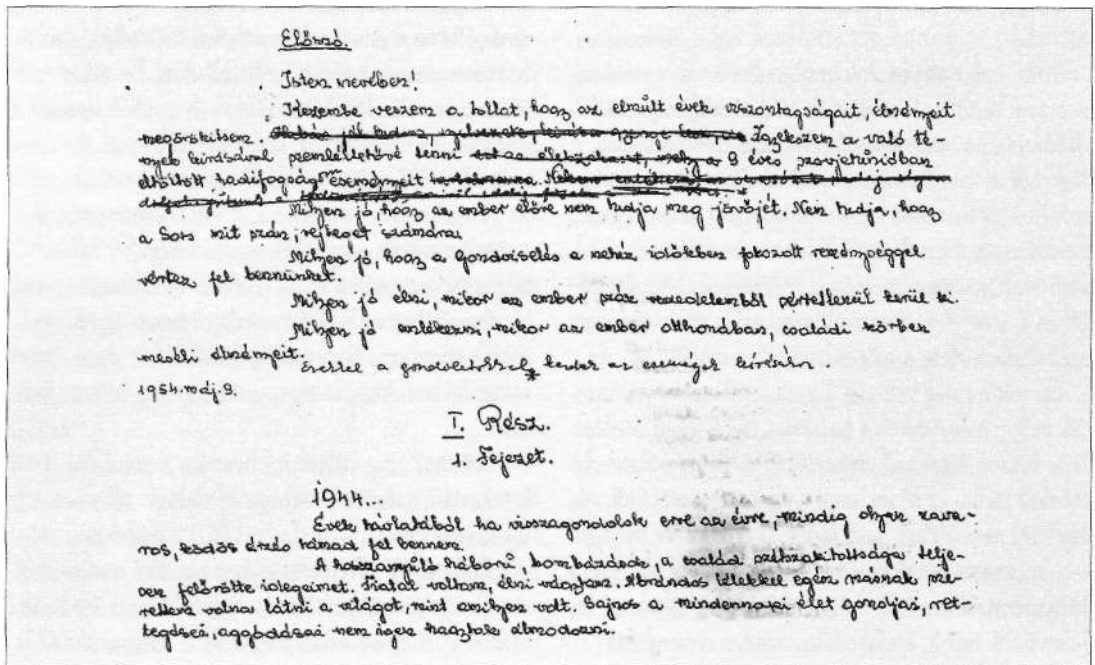 Előszó.
Isten nevében!
Kezembe veszem a tollat, hogy az elmúlt évek viszontagságait, élményeit
megörökítsem. Igyekszem a való té
nyek leírásával szemléltetővé tenni a 9 éves szovjetúnióban
eltöltött hadifogság eseményeit
Milyen jó, hogy az ember előre nem tudja meg jövőjét. Nem tudja, hogy
a Sors mit szán, rejteget számára.
Milyen jó, hogy a Gondviselés a nehéz időkben fokozott reménységgel
vértez fel bennünket.
Milyen jó élni, mikor az ember száz veszedelemből sértetlenül kerül ki.
Milyen jó emlékezni, mikor az ember otthonában, családi körben
meséli élményeit.
Ezekkel a gondolatokkal kezdek az események leírásához
1954. máj. 9.
I. Rész.
1. Fejezet.
1944.
Évek távlatából ha visszagondolok erre az évre, mindig olyan zava-
ros, ködös érzés támad fel bennem.
A hosszantartó háború, bombázások, a család szétszakítottsága telje-
sen felőrölte idegeimet. Fiatal voltam, élni vágytam. Ábrándos lélekkel egész másnak sze-
rettem volna látni a világot, mint amilyen volt. Sajnos a mindennapi élet gondjai, ret-
tegései, aggódásai nem igen hagytak álmodozni.